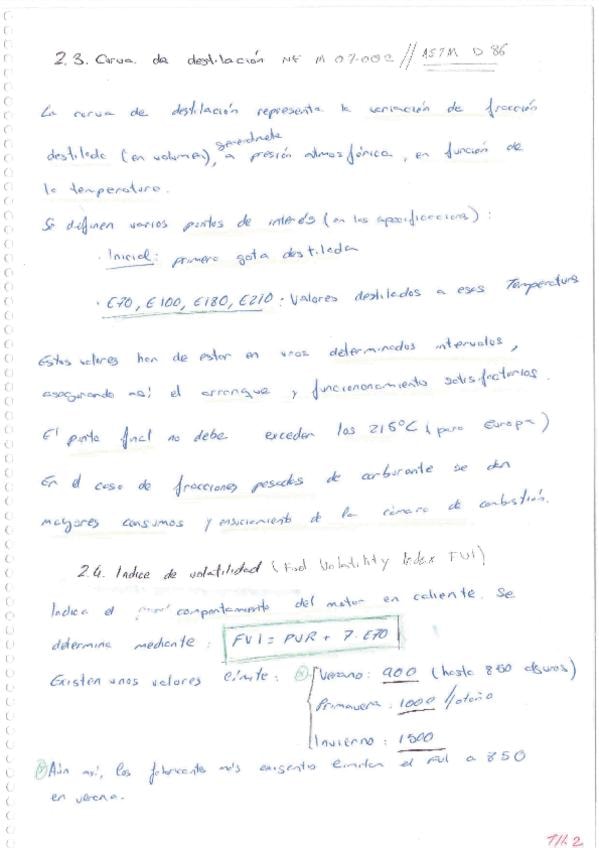 2.3. Curva de destilación NF M 07-002 // ASTM D 86
La curva de destilación representa la variación de fracción
destilada (en volumen), generalmente a presión atmosférica, en función de
la temperatura.
Se definen varios puntos de interés (en las especificaciones):
· Inicial: primera gota destilada
· E70, E100, E180, E210: Valores destilados a esas Temperatura
Estos valores han de estar en unos determinados intervalos,
asegurando así el arranque y funcionamiento satisfactorios.
El punto final no debe exceder los 215ºC (para Europa)
En el caso de fracciones pesadas de carburante se dan
mayores consumos y ensuciamiento de la cámara de combustión.
2.4. Indice de volatilidad (Fuel Volatility Index FVI)
Indica el comportamiento del motor en caliente. Se
determina mediante: FVI = PVR + 7·E70
Existen unos valores límite: Verano: 900 (hasta 850 algunos)
Primavera: 1000 //otoño
Invierno: 1500
Aún así, los fabricantes más exigentes limitan el FVI a 850
en verano.
T/1.2